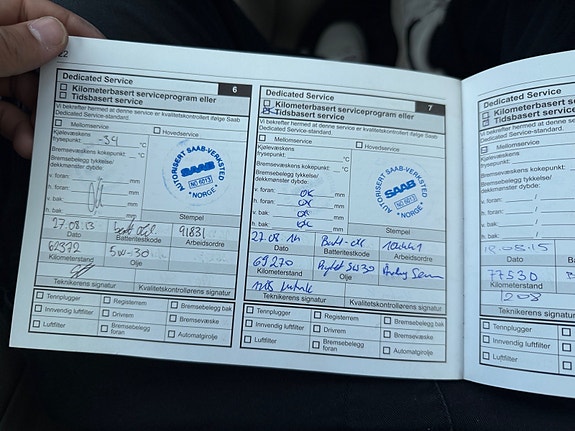 22
Dedicated Service
6
Kilometerbasert serviceprogram eller
Tidsbasert service
Vi bekrefter hermed at denne service er kvalitetskontrollert ifølge Saab
Dedicated Service-standard.
Mellomservice
Hovedservice
Kjølevæskens
frysepunkt: -39 °C
Bremsevæskens kokepunkt: °C
Bremsebelegg tykkelse/
dekkmønster dybde:
v. foran: mm
h. foran: mm
v. bak: mm
h. bak: mm
AUTORISERT SAAB-VERKSTED
SAAB
NO 6013
* NORGE *
Stempel
27.08.13
91831
Dato
Batteritestkode
Arbeidsordre
62372
5W-30
Kilometerstand
Olje
Teknikerens signatur
Kvalitetskontrollørens signatur
Tennplugger
Registerrem
Bremsebelegg bak
Innvendig luftfilter
Drivrem
Bremsevæske
Luftfilter
Bremsebelegg foran
Automatgirolje
Dedicated Service
7
Kilometerbasert serviceprogram eller
Tidsbasert service
Vi bekrefter hermed at denne service er kvalitetskontrollert ifølge Saab
Dedicated Service-standard.
Mellomservice
Hovedservice
Kjølevæskens
frysepunkt: °C
Bremsevæskens kokepunkt: °C
Bremsebelegg tykkelse/
dekkmønster dybde:
v. foran: OK mm
h. foran: OK mm
v. bak: OK mm
h. bak: OK mm
AUTORISERT SAAB-VERKSTED
SAAB
NO 6013
* NORGE *
Stempel
27.08.14
Dato
Batteritestkode
Arbeidsordre
69270
5W30
Kilometerstand
Olje
Teknikerens signatur
Kvalitetskontrollørens signatur
Tennplugger
Registerrem
Bremsebelegg bak
Innvendig luftfilter
Drivrem
Bremsevæske
Luftfilter
Bremsebelegg foran
Automatgirolje
Dedicated Service
Kilometerbasert
Tidsbasert service
Vi bekrefter hermed at denne se
Dedicated Service-standard.
Mellomservice
Kjølevæskens
frysepunkt:
Bremsevæskens kokepunkt:
Bremsebelegg tykkelse/
dekkmønster dybde:
v. foran: /
h. foran: /
v. bak: /
h. bak: /
.08.15
Dato
77530
Kilometerstand
1208
Teknikerens signatur
Tennplugger
Innvendig luftfilter
Luftfilter